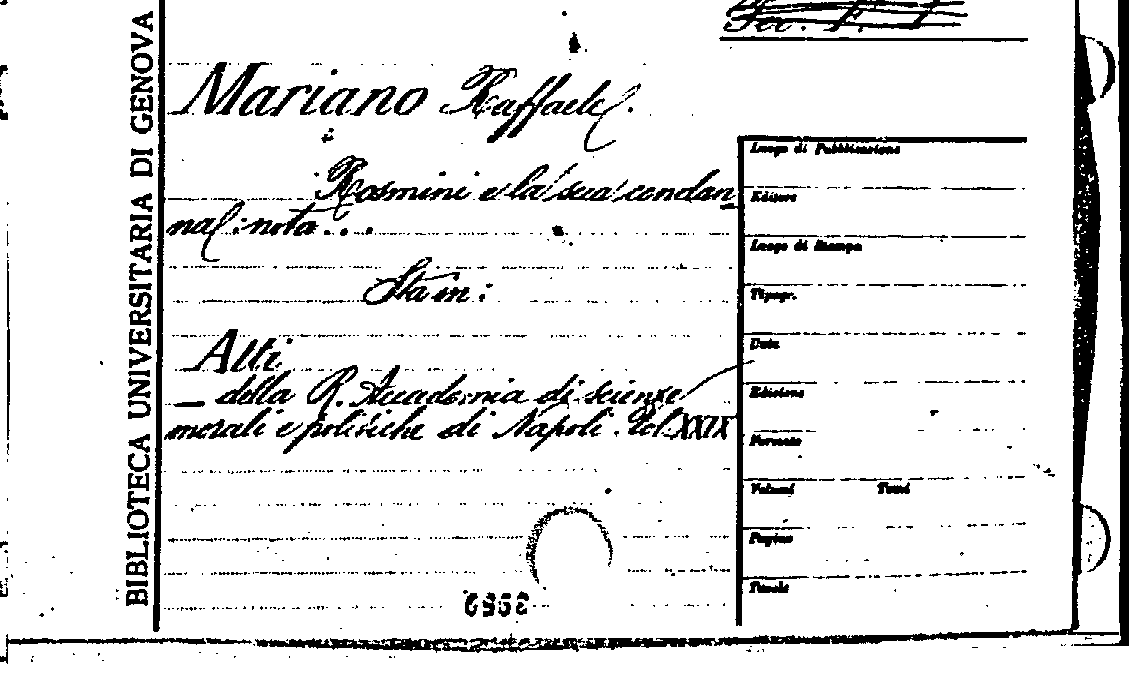 BIBLIOTECA UNIVERSITARIA DI GENOVA
Mariano Raffaele.
Rosmini e la sua condan-
na: nota...
Sta in:
Atti
della R. Accademia di scienze
morali e politiche di Napoli. Vol. XXIX
Luogo di Pubblicazione
Editore
Luogo di Stampa
Tipogr.
Data
Edizione
Formato
Volumi Tomi
Pagine
Tavole